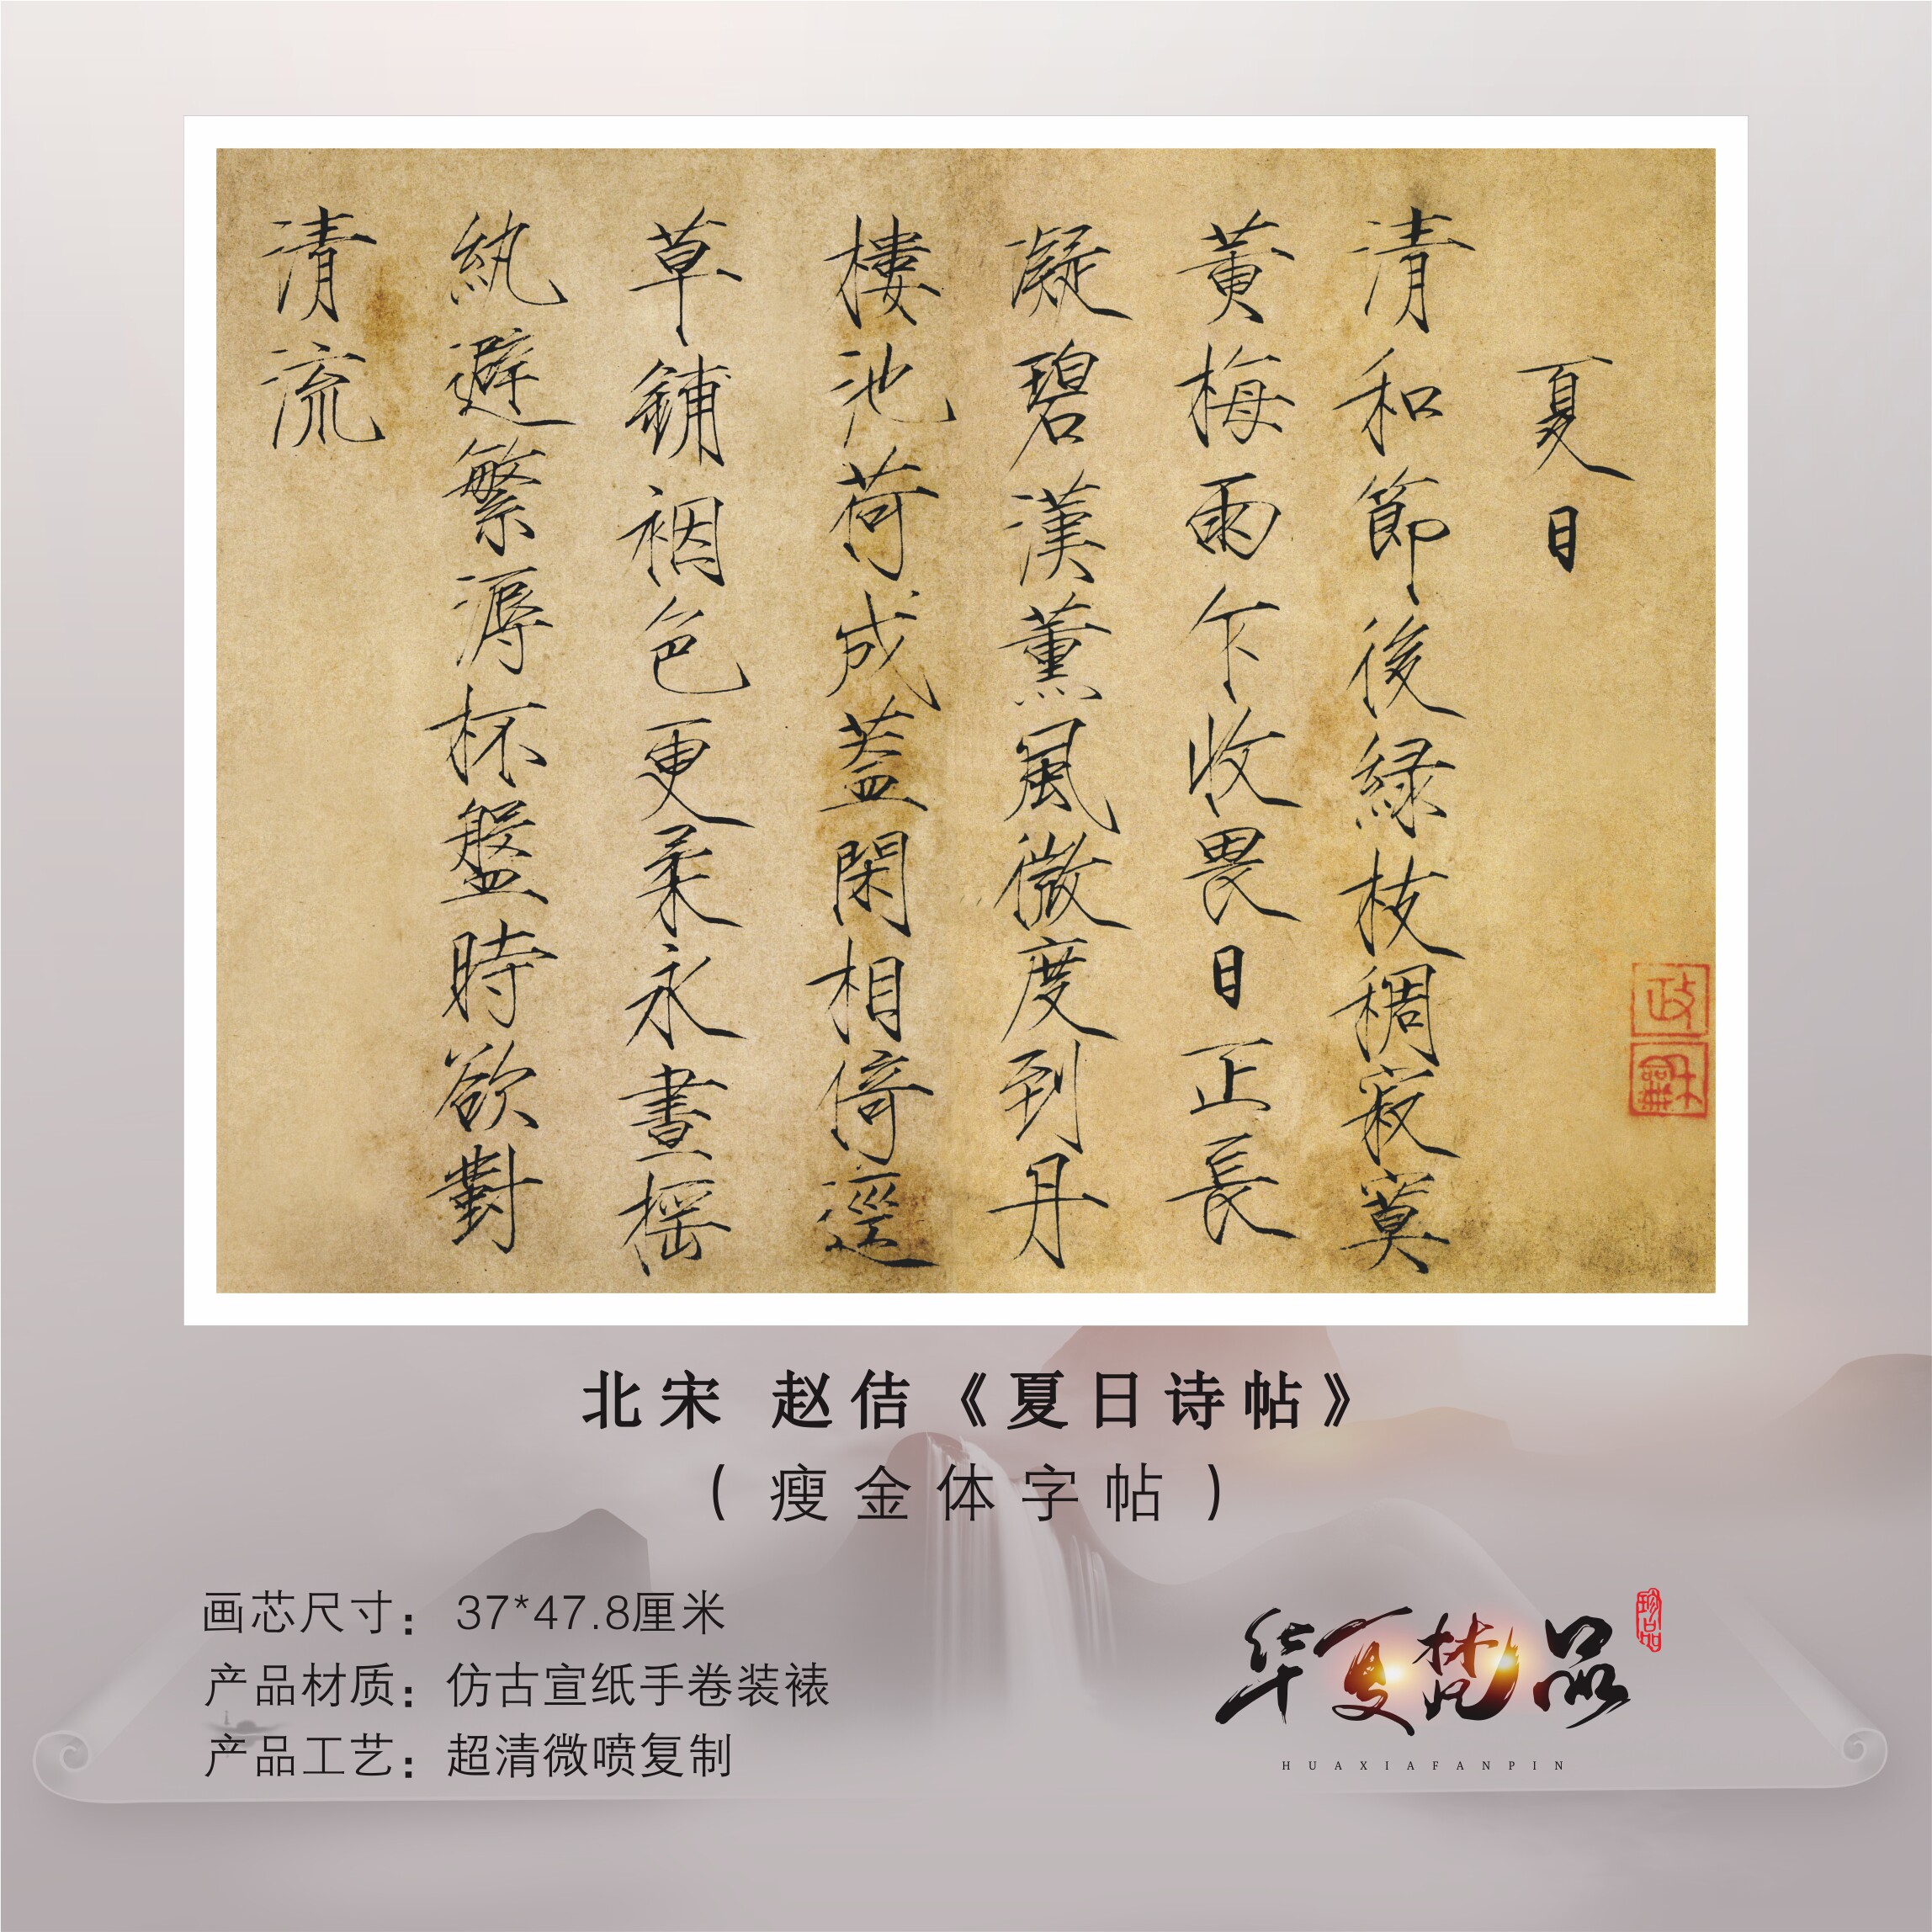 夏日
清和節後緑枝稠寂寞
黄梅雨乍收畏日正長
凝碧漢薰風微度到丹
樓池荷成蓋閑相倚逕
草鋪裀色更柔永晝摇
紈避繁溽杯盤時欲對
清流
政
龢
北宋 赵佶《夏日诗帖》
(瘦金体字帖)
画芯尺寸：37*47.8厘米
产品材质：仿古宣纸手卷装裱
产品工艺：超清微喷复制
华夏梵品
珍品
HUAXIAFANPIN